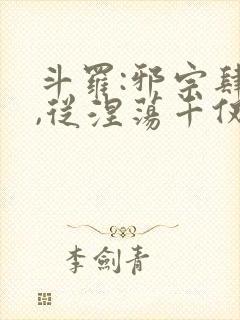 斗羅:邪宗肆
,從涅蕩千仅
李劍青